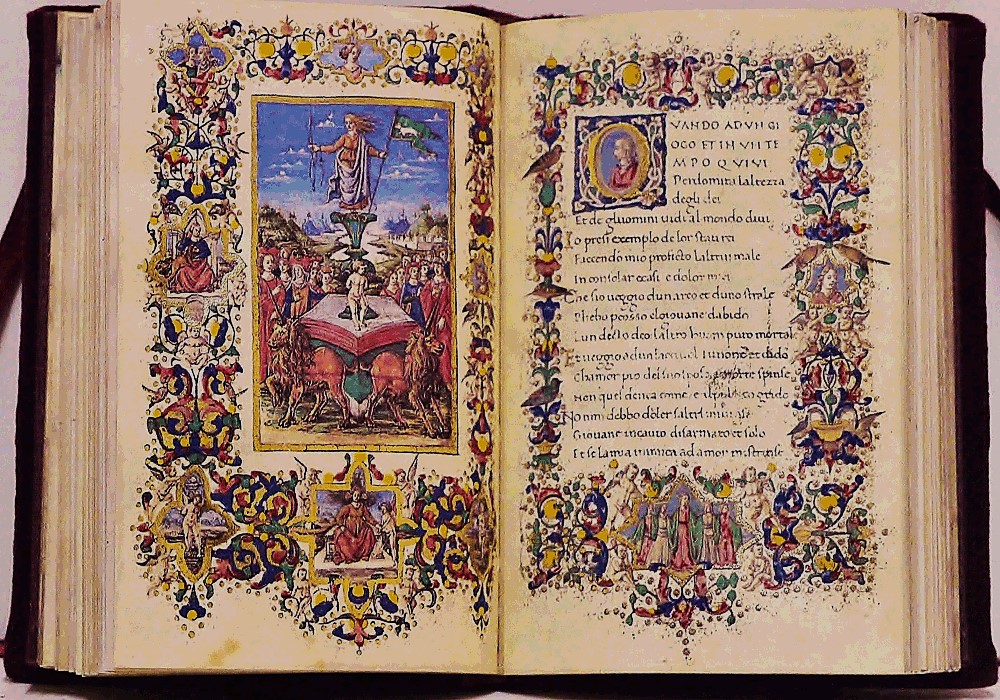 QVANDO AD VN GI
OGO ET IN VN TE
MPO QVIVI
Perdomita laltezza
degli dei
Et de gluomini uidi al mondo diui
Io presi exemplo de lor stati rei
Faccendo mio proficto laltrui male
In consolar e casi e dolor miei
Che sio ueggio dun arco et duno strale
Phebo percosso elgiouane dabido
Lun decto deo laltro huom puro mortal
Et ueggio ad un lacciuol Iunone et dido
Chamor pio del suo sposo a morte spinse
Non quel denea come e ilpublico grido
Non mi debbo doler saltri mi uinse
Giouane incauto disarmato et solo
Et se la mia inimica amor strinse